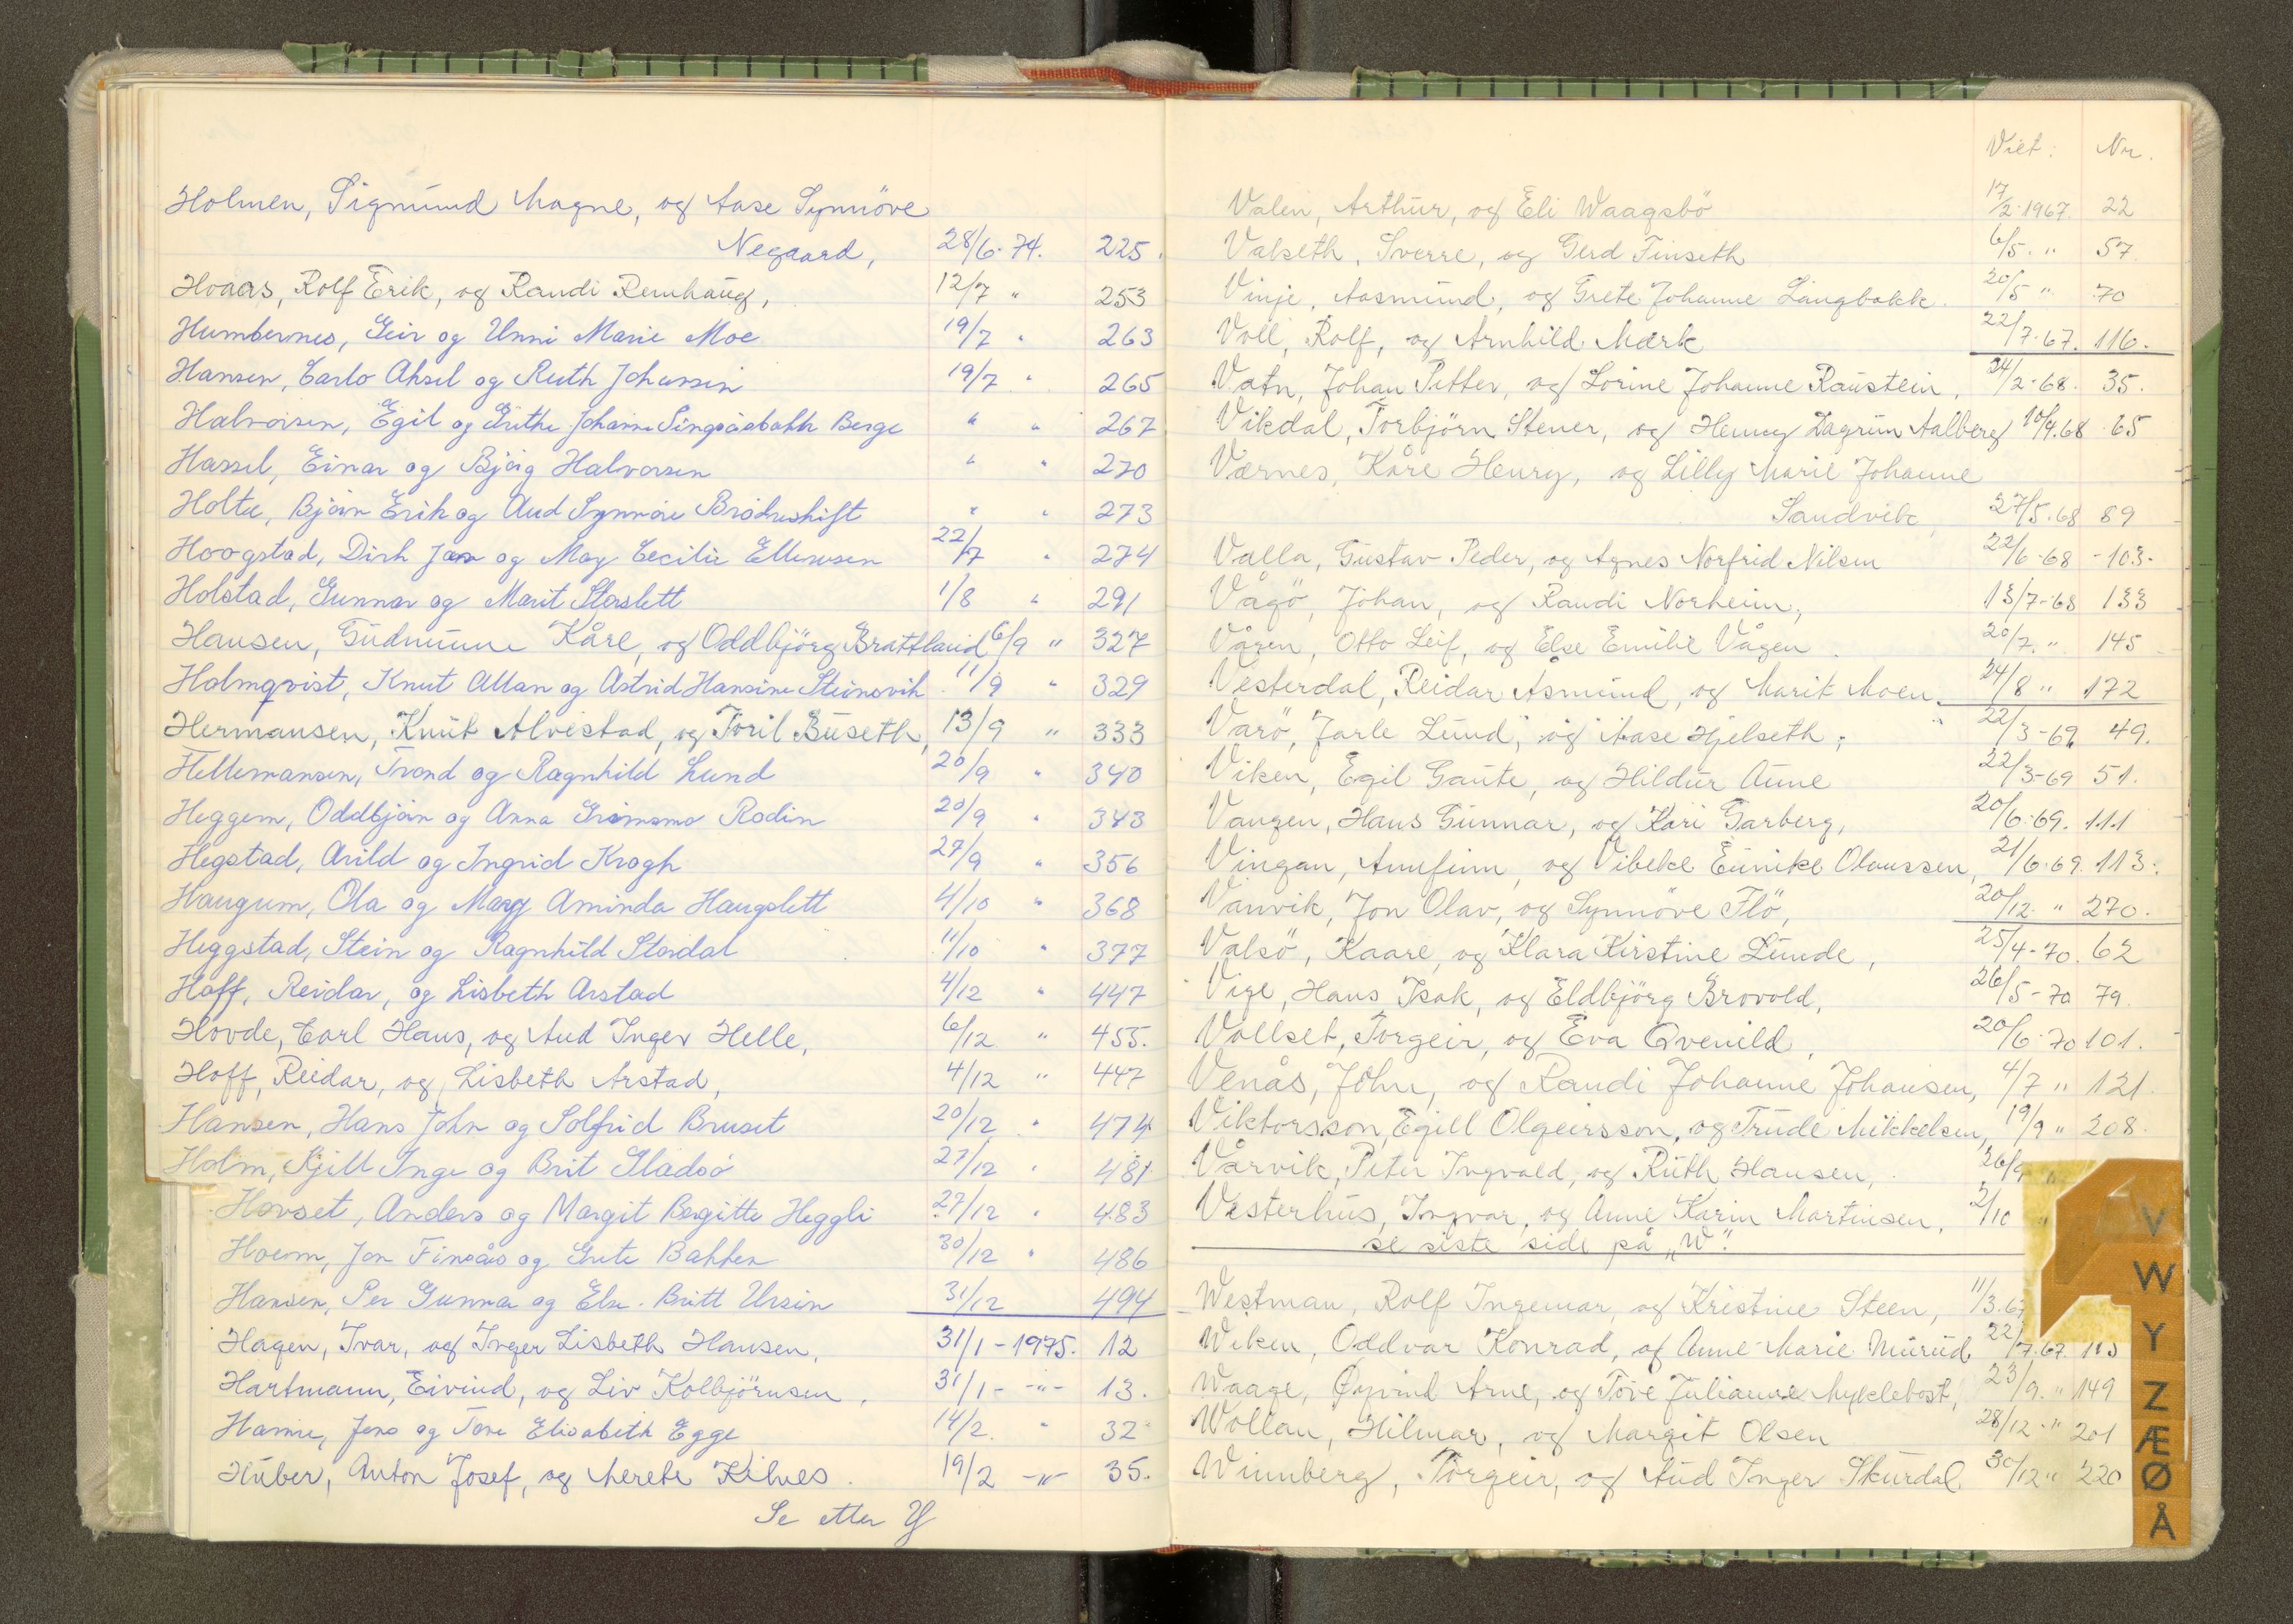 Holmen, Sigmund Magne, og Aase Synnöve
Negaard, 28/6-74. 225.
Hoaas, Rolf Erik, og Randi Remhaug, 12/7 " 253
Humbernes, Geir og Unni Marie Moe 19/7 " 263
Hansen, Carlo Aksel og Ruth Johansen 19/7 " 265
Halvorsen, Egil og Grethe Johanne Singsåsbakk Berge " " 267
Hassel, Einar og Bjørg Halvorsen " " 270
Holte, Bjørn Erik og Aud Synnøve Brødreskift " " 273
Hoogstad, Dirk Jan og May Cecilie Ellewsen 22/7 " 274
Holstad, Gunnar og Marit Storslett 1/8 " 291
Hansen, Gudmunn Kåre, og Oddbjörg Brattland 6/9 " 327
Holmqvist, Knut Allan og Astrid Hansine Steinsvik 11/9 " 329
Hermansen, Knut Alvestad, og Toril Buseth, 13/9 " 333
Hellemansen, Trond og Ragnhild Lund 20/9 " 340
Heggem, Oddbjørn og Anna Grimsmo Rodin 20/9 " 343
Hegstad, Arild og Ingrid Krogh 27/9 " 356
Haugum, Ola og Mary Aminda Haugslett 4/10 " 368
Heggstad, Stein og Ragnhild Stordal 11/10 " 377
Hoff, Reidar, og Lisbeth Arstad 4/12 " 447
Hovde, Carl Hans, og Aud Inger Helle, 6/12 " 455.
Hoff, Reidar, og Lisbeth Arstad, 4/12 " 447
Hansen, Hans John og Solfrid Bruset 20/12 " 474
Holm, Kjell Inge og Brit Gladsø 27/12 " 481
Hovset, Anders og Margit Bergitte Heggli 27/12 " 483
Hoem, Jon Finsås og Grete Bakken 30/12 " 486
Hansen, Per Gunnar og Else-Britt Ursin 31/12 494
Hagen, Ivar, og Inger Lisbeth Hansen, 31/1-1975. 12
Hartmann, Eivind, og Liv Kolbjörnsen, 31/1- -"- 13.
Hamre, Jens og Tove Elisabeth Egge 14/2. " 32
Huber, Anton Josef, og Merete Kilnes. 19/2 -"- 35.
Se etter Y
Viet: Nr.
Valen, Arthur, og Eli Waagsbö 17/2-1967. 22
Valseth, Sverre, og Gerd Finseth 6/5. " 57
Vinje, Aasmund, og Grete Johanne Langbakk. 20/5 " 70
Voll, Rolf, og Arnhild Mærk 22/7-67. 116.
Vatn, Johan Petter, og Lorine Johanne Raustein, 24/2-68. 35.
Vikdal, Torbjörn Stener, og Henny Dagrun Aalberg 10/4.68 65
Værnes, Kåre Henry, og Lilly Marie Johanne
Sandvik, 27/5-68 89
Valla, Gustav Peder, og Agnes Norfrid Nilsen 22/6-68 -103-
Vågö, Johan, og Randi Norheim, 13/7-68 133
Vågen, Otto Leif, og Else Emilie Vågen. 20/7. " 145
Vesterdal, Reidar Asmund, og Marit Moen. 24/8 " 172
Varö, Jarle Lund, og Aase Hjelseth, 22/3-69 49.
Viken, Egil Gaute, og Hildur Aune 22/3-69 51.
Vangen, Hans Gunnar, og Kari Garberg, 20/6-69. 111
Vingan, Arnfinn, og Vibeke Eunike Olaussen, 21/6-69. 113.
Vanvik, Jon Olav, og Synnöve Flö, 20/12. " 270.
Valsö, Kaare, og Klara Kirstine Lunde, 25/4-70. 62
Vige, Hans Isak, og Eldbjörg Brovold, 26/5-70 79.
Vollset, Torgeir, og Eva Qvenild, 20/6-70 101.
Venås, John, og Randi Johanne Johansen, 4/7 " 121.
Viktorsson, Egill Olgeirsson, og Trude Mikkelsen, 19/9 " 208.
Vårvik, Peter Ingvald, og Ruth Hansen, 26/9
Vesterhus, Ingvar, og Anne Karin Martinsen, 2/10 "
se siste side på „W".
Westman, Rolf Ingemar, og Kristine Steen, 11/3-67
Wiken, Oddvar Konrad, og Anne Marie Murud 22/7-67.
Waage, Øyvind Arne, og Tove Julianne Myklebost, 23/9. " 149
Wollan, Hilmar, og Margit Olsen 28/12-" 201
Winnberg, Torgeir, og Aud Inger Skurdal. 30/12 " 220
V
W
Y
Z
Æ
Ø
Å